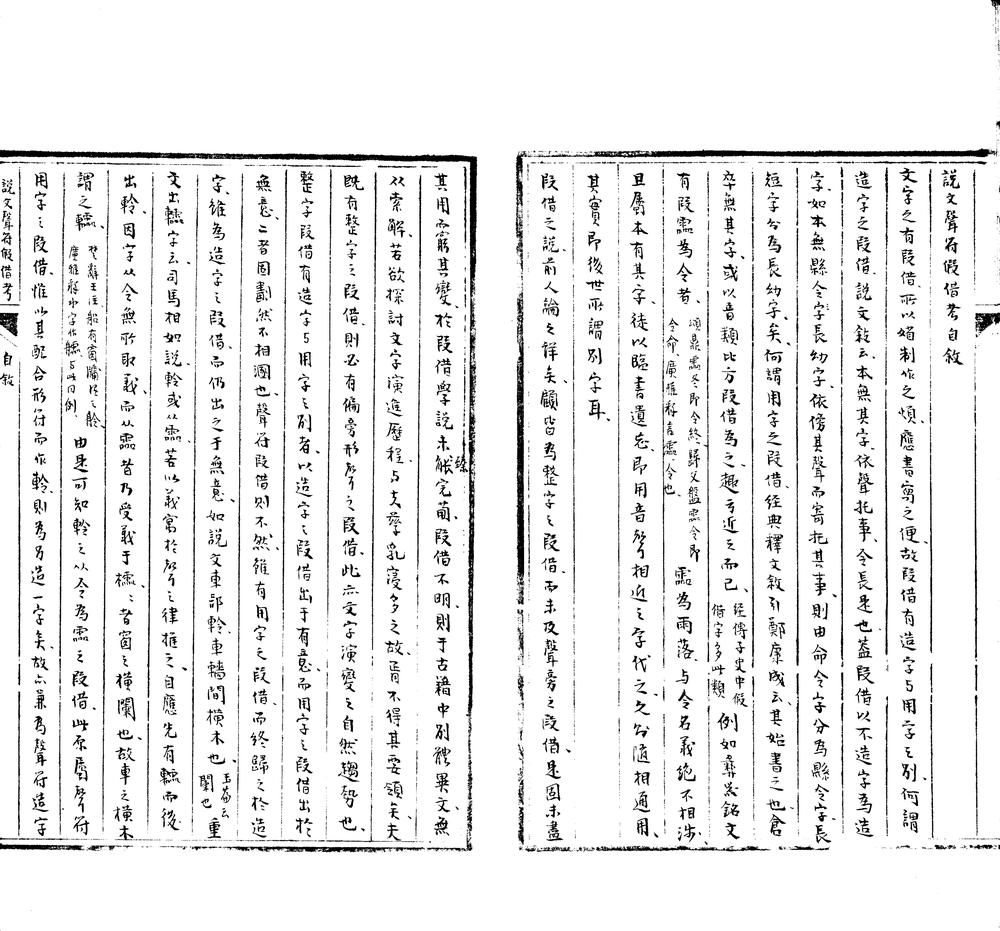 説文聲符假借考自敘
文字之有叚借所以媍制作之煩應書寫之便故叚借有造字与用字之別何謂
造字之叚借説文敘云本無其字依聲托事令長是也蓋叚借以不造字為造
字如本無縣令字長幼字依傍其聲而寄托其事則由命令字分為縣令字長
短字分為長幼字矣何謂用字之叚借經典釋文敘引鄭康成云其始書之也倉
卒無其字或以音類比方叚借為之趣于近之而已經傳子史中假借字多此類例如彝器銘文
有叚霝為令者頌鼎霝冬即令終歸父盤霝令即令命廣雅釋言霝令也霝為雨落与令名義絶不相涉
且屬本有其字徒以臨書遺忘即用音聲相近之字代之久勿隨相通用
其實即後世所謂別字耳
叚借之説前人論之詳矣顧皆為整字之叚借而未及聲旁之叚借是固未盡
其用而窮其變於叚借學説未能完葡叚借不明則于古籍中別體異文無
从索解若欲探討文字演進歷程与夫孳乳寖多之故胥不得其要領矣夫
既有整字之叚借則必有偏旁形聲之叚借此亦文字演變之自然趨勢也
整字叚借有造字与用字之別者以造字之叚借出于有意而用字之叚借出於
無意二者固劃然不相溷也聲符叚借則不然雖有用字之叚借而終歸之於造
字雖為造字之叚借而仍出之于無意如説文車部軨車轖間横木也玉篇云闌也重
文出轜字云司馬相如説軨或从霝若以義寓於聲之律推之自應先有轜而後
出軨因字从令無所取義而从霝者乃受義于櫺櫺者窗之横闌也故車之横木
謂之轜楚辭王注船有窗牖者由是可知軨之从令為霝之叚借此原屬聲符
用字之叚借惟以其配合形符而作軨則為另造一字矣故亦兼為聲符造字
説文聲符假借考
自敘